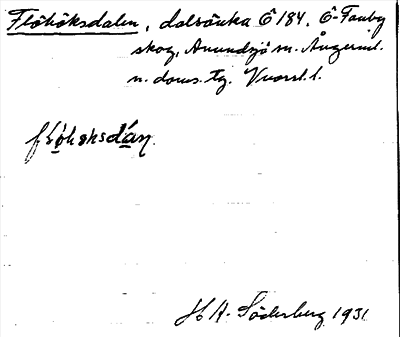 Flöhöksdalen, dalsänka Ö 184. Ö-Fanby
skog, Anundsjö sn. Ångerml.
n. doms. tg. Västl. l.
fLöhøksdáɳ.
H A. Söderberg 1931